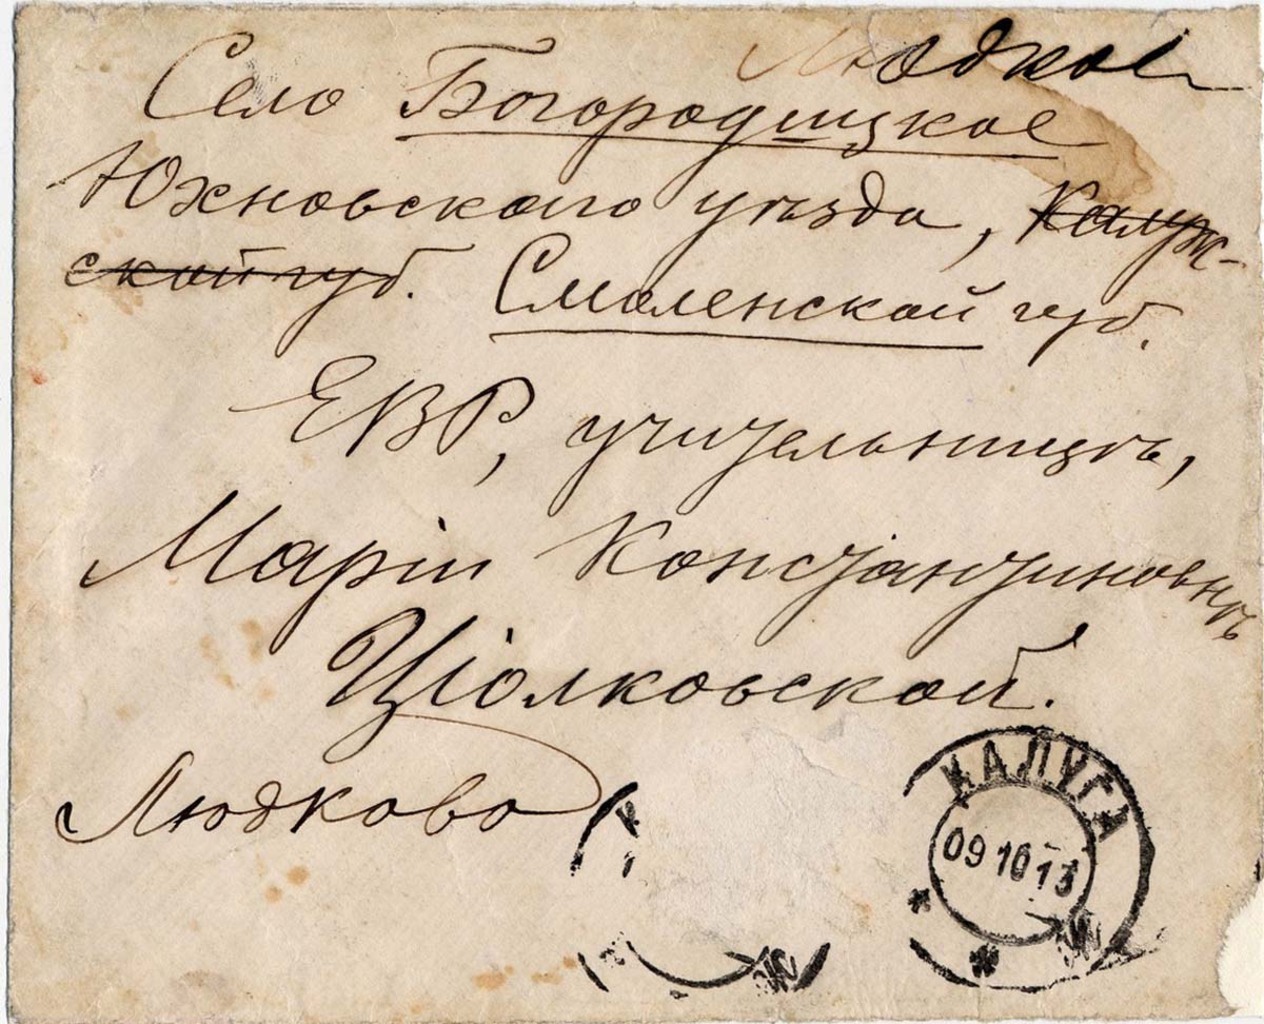 Людков
Село Богородицкое
Юхновскаго уѣзда, Калуж-
ской губ. Смоленской губ.
ЕВР, учительницѣ,
Маріи Константиновнѣ
Ціолковской.
Людково
КАЛУГА
09 10 13